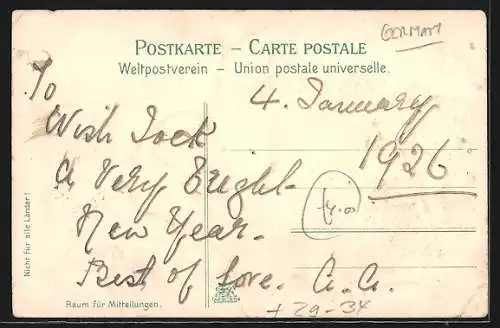 GERMANY
POSTKARTE – CARTE POSTALE
Weltpostverein – Union postale universelle.
To
Wish Jock
a Very Bright
New Year.
Best of Love. A.A.
4. January
1926
Nicht für alle Länder!
Raum für Mitteilungen.
+ 29-34